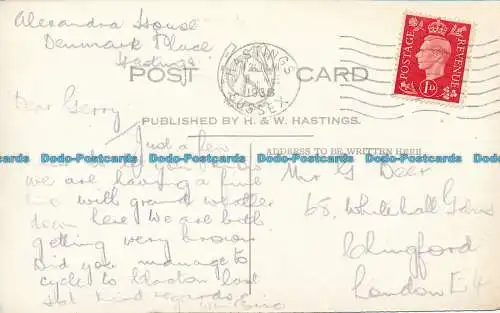 Alexandra House
Denmark Place
Hastings
POST CARD
HASTINGS
1938
SUSSEX
POSTAGE REVENUE
1D
PUBLISHED BY H. & W. HASTINGS.
ADDRESS TO BE WRITTEN HERE
Dear Gerry
Just a few
you know
we are having a fine
time with grand weather
down here we are both
getting very brown
Did you manage to
cycle to last
Sat Kind regards
Mr G Deer
65 Whitehall Gdns
Chingford
London E4
Dodo-Postcards Dodo-Postcards Dodo-Postcards Dodo-Postcards Dodo-Postcards